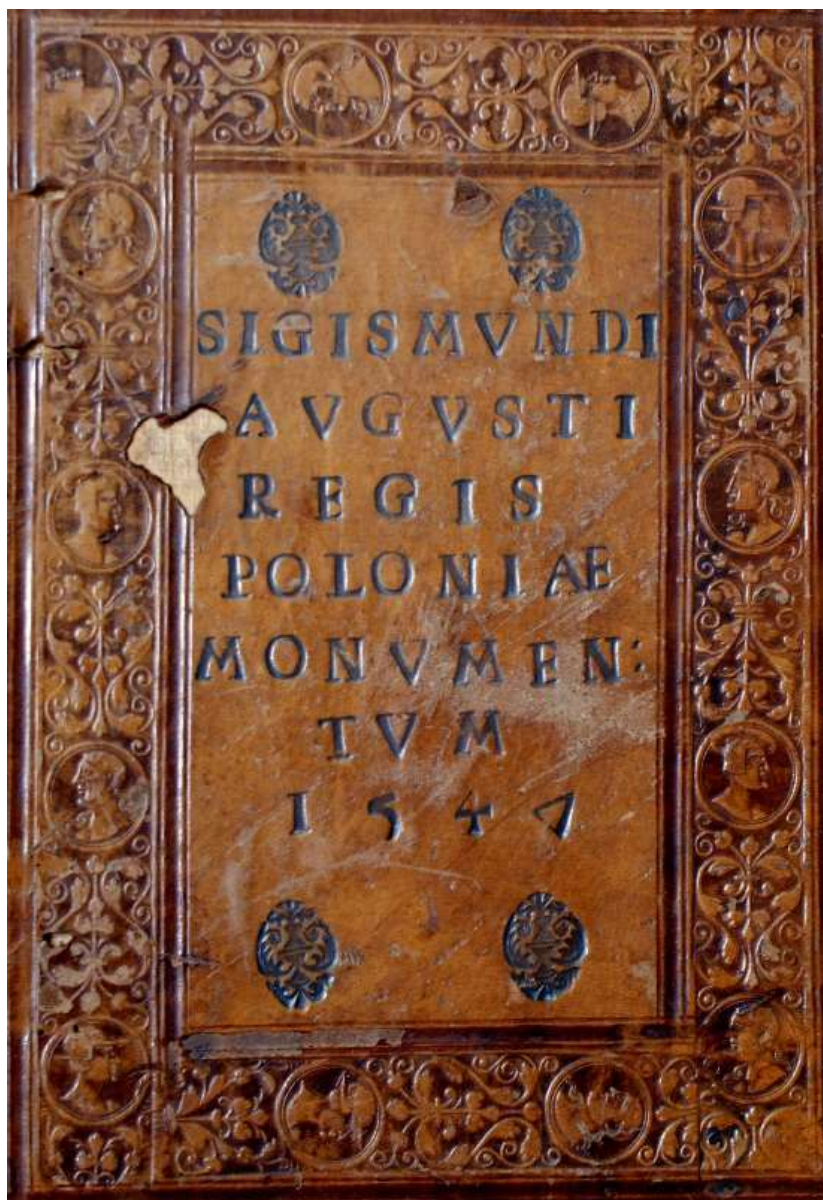 SIGISMVNDI
AVGVSTI
REGIS
POLONIAE
MONVMEN:
TVM
1547